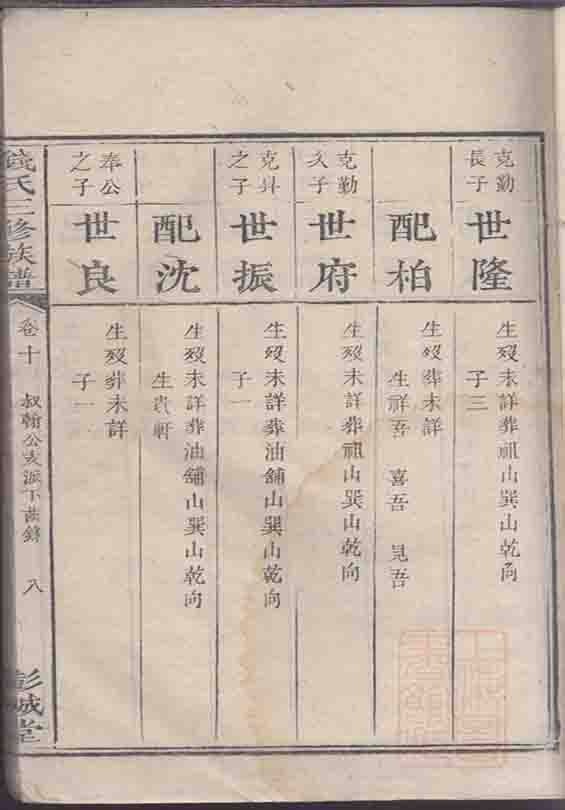 克勤
長子
世隆
生歿未詳葬祖山巽山乾向
子三
配柏
生歿葬未詳
生祥吾 喜吾 見吾
克勤
次子
世府
生歿未詳葬祖山巽山乾向
克昇
之子
世振
生歿未詳葬油舖山巽山乾向
子一
配沈
生歿未詳葬油舖山巽山乾向
生貴軒
奉公
之子
世良
生歿葬未詳
子一
錢氏三修族譜
卷十
叔翰公支派下
八
彭城堂